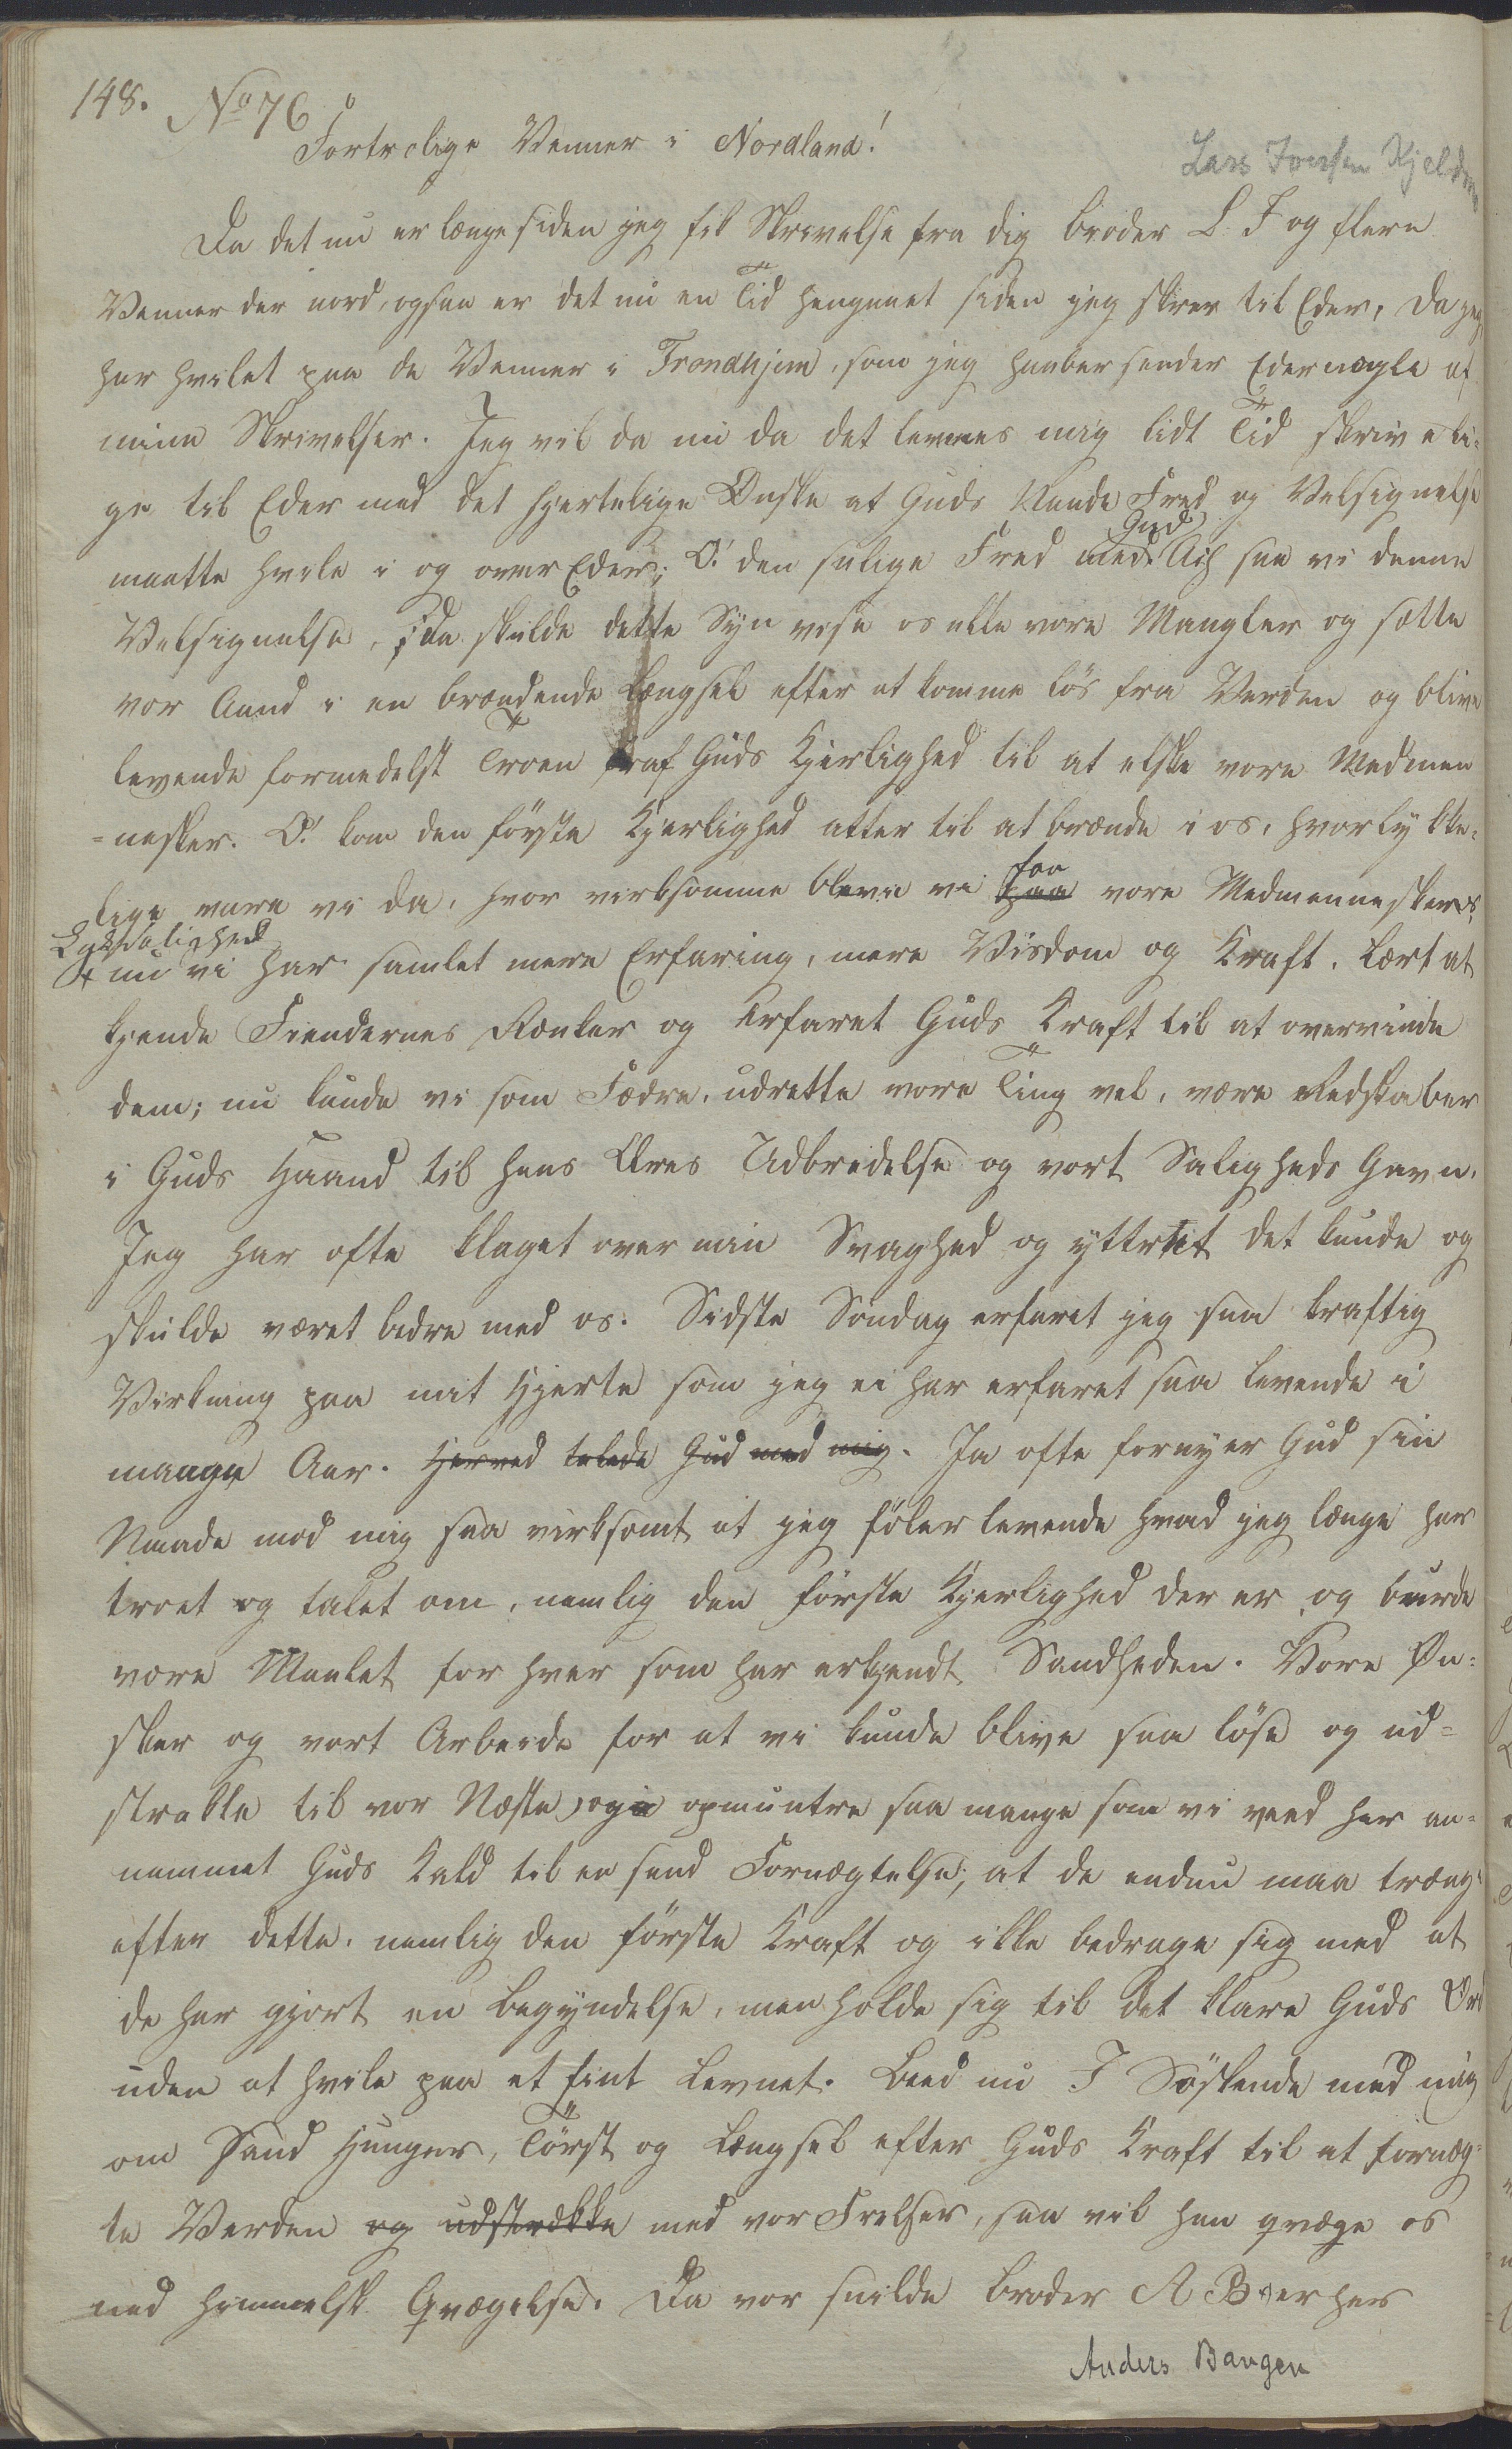 148. No 76
Fortrolige Venner i Nordland!
Lars Iversen Kjeldsen
Da det nu er længe siden jeg fik Skrivelse fra dig broder L. I og flere
Venner der nord, ogsaa er det nu en Tid hengaaet siden jeg skrev til Eder, da jeg
har hvilet paa de Venner i Trondhjem, som jeg haaber sender Eder nogle af
mine Skrivelser. Jeg vil da nu da det levnes mig lidt Tid skrive li-
ge til Eder med det hjertelige Ønske at Guds Naade Fred og Velsignelse
maatte hvile i og over Eder; O! den salige Fred med Gud Ach saa vi denne
Velsignelse, da skulde dette Syn vise os alle vore Mangler og sætte
vor Aand i en brændende Længsel efter at komme løs fra Verden og blive
levende formedelst Troen af Guds Kjerlighed til at elske vore Medmen
=nesker. O! kom den første Kjerlighed atter til at brænde i os, hvor lykke-
lige vare vi da, hvor virksomme bleve vi paa for vore Medmenneskers
Lyksalighed
+ nu vi har samlet mere Erfaring, mere Viisdom og Kraft, lært at
kjende Fiendernes Rænker og erfaret Guds Kraft til at overvinde
dem; nu kunde vi som Fædre, udrette vore Ting vel, være Redskaber
i Guds Haand til hans Æres Udbredelse og vort Saligheds Gavn.
Jeg har ofte klaget over min Svaghed og yttret det kunde og
skulde været bedre med os. Sidste Søndag erfaret jeg saa kraftig
Virkning paa mit Hjerte som jeg ei har erfaret saa levende i
mange Aar. Herved talede Gud med mig. Ja ofte fornyer Gud sin
Naade mod mig saa virksomt at jeg føler levende hvad jeg længe har
troet og talet om, nemlig den første Kjerlighed der er og burde
være Maalet for hver som har erkjendt Sandheden. Vore Øn-
sker og vort Arbeide for at vi kunde blive saa løse og ud=
strakte til vor Næste, og opmuntre saa mange som vi veed har an=
nammet Guds Kald til en sand Fornægtelse; at de endnu maa trænge
efter dette, nemlig den første Kraft og ikke bedrage sig med at
de har gjort en begyndelse, men holde sig til det klare Guds Ord
uden at hvile paa et fint Levnet. Beed nu I Søskende med mig
om sand Hunger, Tørst og Længsel efter Guds Kraft til at fornæg-
te Verden og udstrække med vor Frelser, saa vil han qvæge os
med himmelsk Qvægelse. Da vor snilde broder A B er her
Anders Bangen